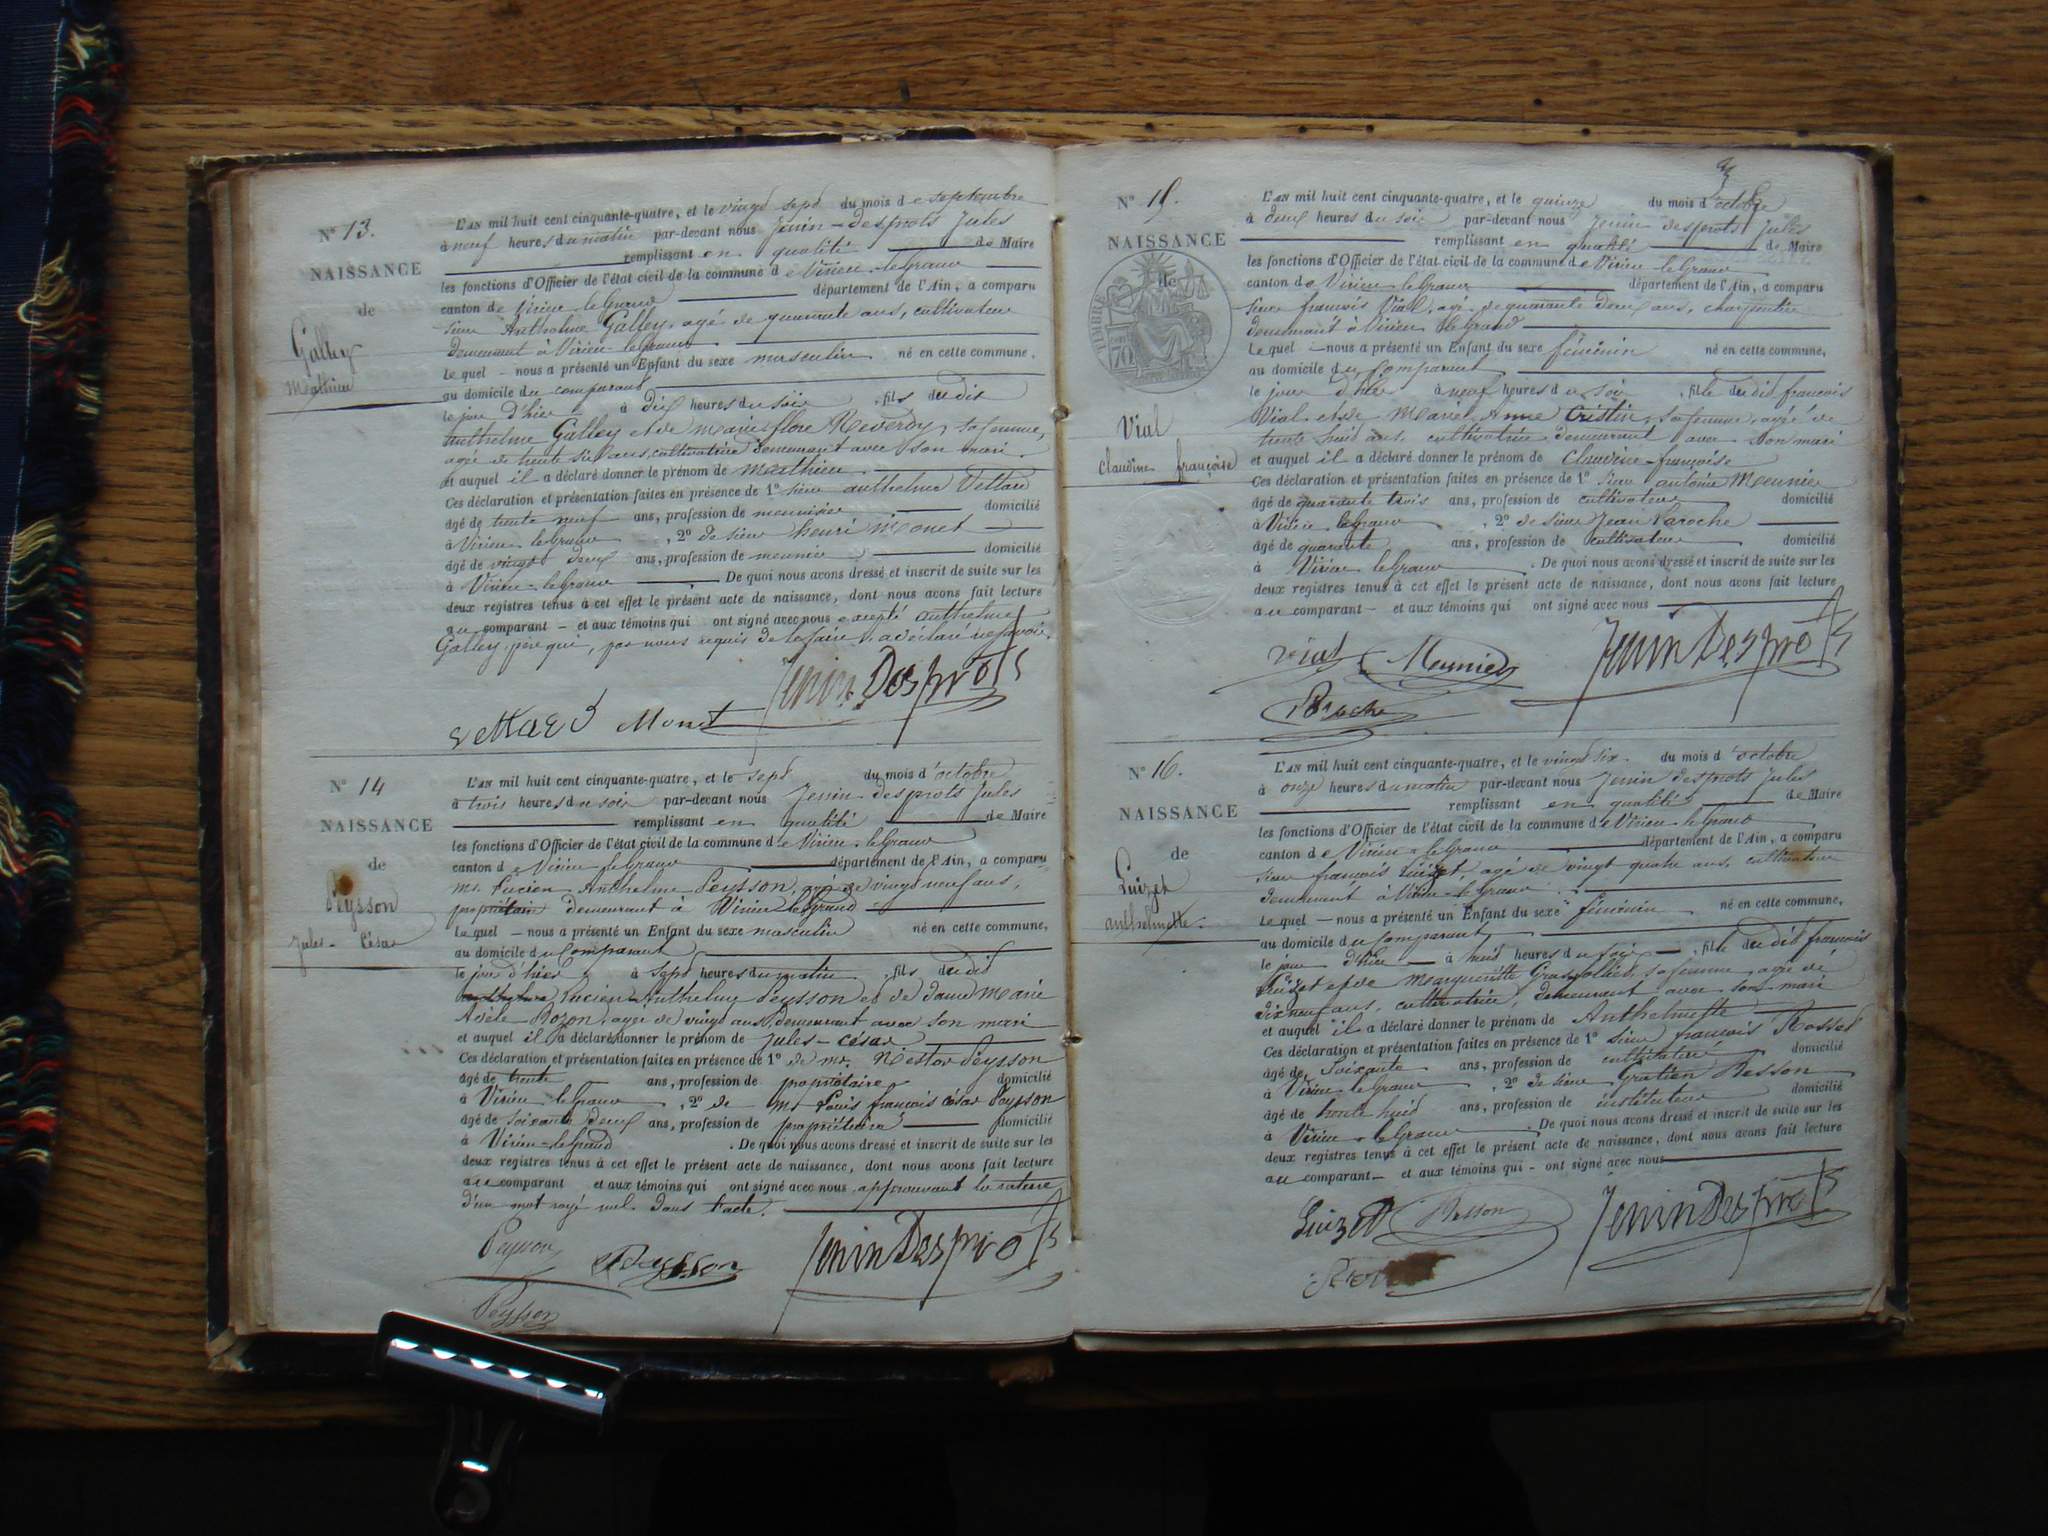 N° 13.
NAISSANCE
de
Galley
Mathieu
L'AN mil huit cent cinquante-quatre, et le vingt sept du mois de septembre
à neuf heures du matin par-devant nous Jenin-desprots Jules
remplissant en qualité de Maire
les fonctions d'Officier de l'état civil de la commune de Virieu-le Grand
canton de Virieu le Grand département de l'Ain, a comparu
sieur Anthelme Galley, agé de quarante ans, cultivateur
demeurant à Virieu-le Grand
Lequel nous a présenté un Enfant du sexe masculin né en cette commune,
au domicile du comparant
le jour d'hier à dix heures du soir, fils du dit
anthelme Galley et de marie flore Reverdy, sa femme,
agée de trente six ans, cultivatrice demeurant avec son mari.
et auquel il a déclaré donner le prénom de mathieu.
Ces déclaration et présentation faites en présence de 1° sieur anthelme Vettard
âgé de trente neuf ans, profession de menuisier domicilié
à Virieu le Grand, 2° de sieur henri Monet
âgé de vingt deux ans, profession de meunier domicilié
à Virieu-le Grand. De quoi nous avons dressé et inscrit de suite sur les
deux registres tenus à cet effet le présent acte de naissance, dont nous avons fait lecture
au comparant et aux témoins qui ont signé avec nous excepté anthelme
Galley père qui, par nous requis de le faire, a déclaré ne savoir.
Vettard Monet JeninDesprots
N° 14
NAISSANCE
de
Peysson
Jules-César
L'AN mil huit cent cinquante-quatre, et le sept du mois d'octobre
à trois heures du soir par-devant nous Jenin desprots Jules
remplissant en qualité de Maire
les fonctions d'Officier de l'état civil de la commune de Virieu-le Grand
canton de Virieu-le Grand département de l'Ain, a comparu
mr. Lucien Anthelme Peysson, agé de vingt neuf ans,
propriétaire demeurant à Virieu le Grand
Lequel nous a présenté un Enfant du sexe masculin né en cette commune,
au domicile du comparant
le jour d'hier à sept heures du matin, fils du dit
Lucien Anthelme Peysson et de dame Marie
Adèle Bozon, agée de vingt ans, demeurant avec son mari
et auquel il a déclaré donner le prénom de Jules-césar
Ces déclaration et présentation faites en présence de 1° de mr. Nestor Peysson
âgé de trente ans, profession de propriétaire domicilié
à Virieu le Grand, 2° de mr Louis françois césar Peysson
âgé de soixante deux ans, profession de propriétaire domicilié
à Virieu-le Grand. De quoi nous avons dressé et inscrit de suite sur les
deux registres tenus à cet effet le présent acte de naissance, dont nous avons fait lecture
au comparant et aux témoins qui ont signé avec nous approuvant la rature
d'un mot rayé nul dans l'acte.
Peysson Peysson JeninDesprots
Peysson
N° 15.
NAISSANCE
de
TIMBRE
70
Vial
claudine françoise
L'AN mil huit cent cinquante-quatre, et le quinze du mois d'octobre
à deux heures du soir par-devant nous Jenin desprots Jules
remplissant en qualité de Maire
les fonctions d'Officier de l'état civil de la commune de Virieu-le Grand
canton de Virieu-le Grand département de l'Ain, a comparu
sieur françois Vial, agé de quarante deux ans, charpentier
demeurant à Virieu le Grand
Lequel nous a présenté un Enfant du sexe féminin né en cette commune,
au domicile du comparant
le jour d'hier à neuf heures du soir, fille du dit françois
Vial et de Marie Anne Cristin, sa femme, agée de
trente huit ans, cultivatrice demeurant avec son mari
et auquel il a déclaré donner le prénom de Claudine-françoise
Ces déclaration et présentation faites en présence de 1° sieur antoine Meunier
âgé de quarante trois ans, profession de cultivateur domicilié
à Virieu-le Grand, 2° de sieur Jean Paroche
âgé de quarante ans, profession de cultivateur domicilié
à Virieu le Grand. De quoi nous avons dressé et inscrit de suite sur les
deux registres tenus à cet effet le présent acte de naissance, dont nous avons fait lecture
au comparant et aux témoins qui ont signé avec nous
Vial Meunier JeninDesprots
Paroche
N° 16.
NAISSANCE
de
Luizet
anthelmette.
L'AN mil huit cent cinquante-quatre, et le vingt six. du mois d'octobre
à onze heures du matin par-devant nous Jenin desprots Jules
remplissant en qualité de Maire
les fonctions d'Officier de l'état civil de la commune de Virieu-le Grand
canton de Virieu-le Grand département de l'Ain, a comparu
sieur françois Luizet, agé de vingt quatre ans, cultivateur
demeurant à Virieu-le Grand
Lequel nous a présenté un Enfant du sexe féminin né en cette commune,
au domicile du comparant
le jour d'hier à huit heures du soir, fille du dit françois
Luizet et de Marguerite, sa femme, agée de
dix neuf ans, cultivatrice, demeurant avec son mari
et auquel il a déclaré donner le prénom de Anthelmette
Ces déclaration et présentation faites en présence de 1° sieur françois Rosset
âgé de soixante ans, profession de cultivateur domicilié
à Virieu le Grand, 2° de sieur Gratien Besson
âgé de trente huit ans, profession de instituteur domicilié
à Virieu-le Grand. De quoi nous avons dressé et inscrit de suite sur les
deux registres tenus à cet effet le présent acte de naissance, dont nous avons fait lecture
au comparant et aux témoins qui ont signé avec nous
Luizet Besson JeninDesprots